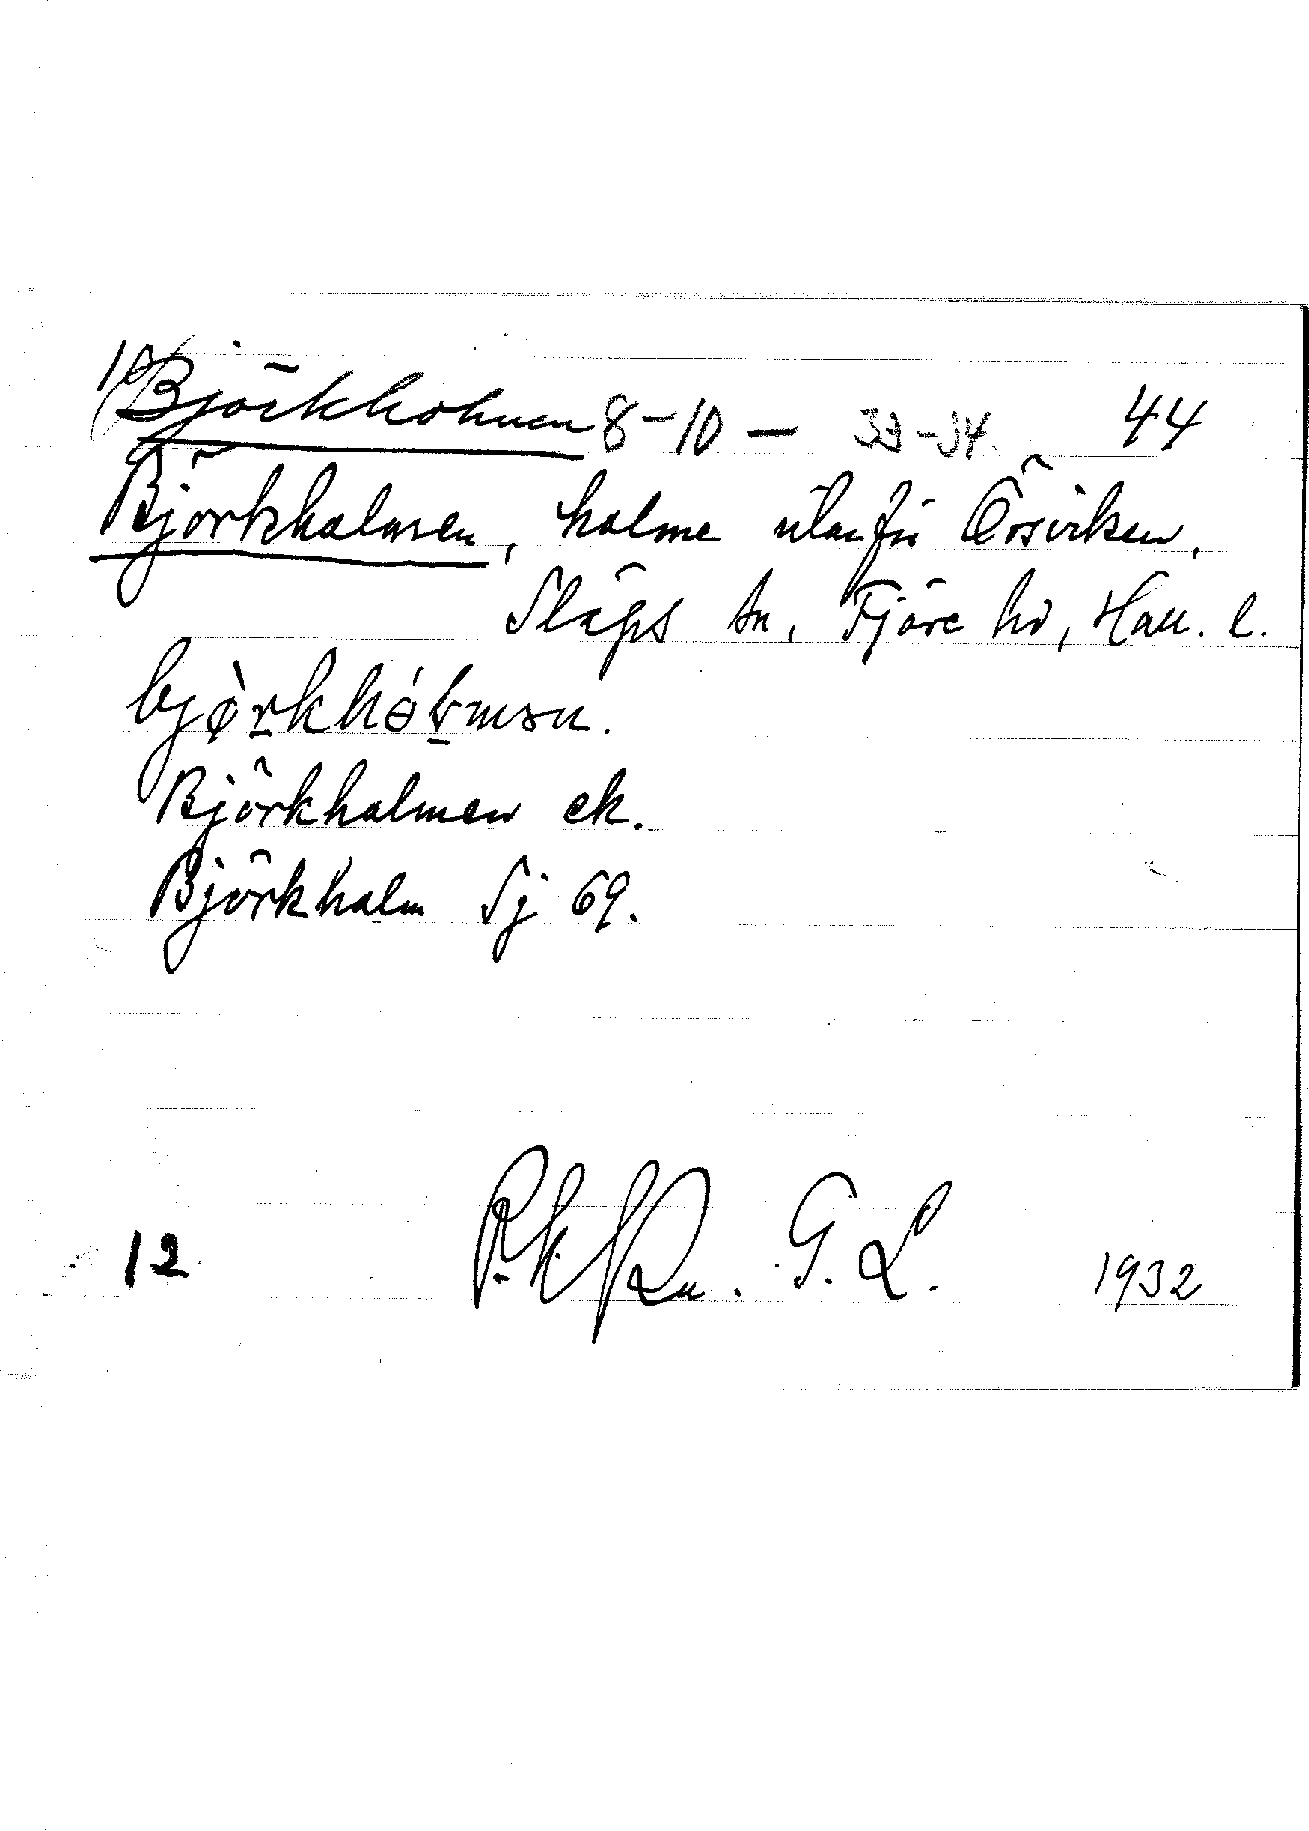 Björkholmen 8-10 — 33-34 44
Björkholmen, holme utanför Örsviken,
Släps sn, Fjäre hd, Hall. l.
Björkholmen ek.
Björkholm Sj 69.
12 G. L. 1932